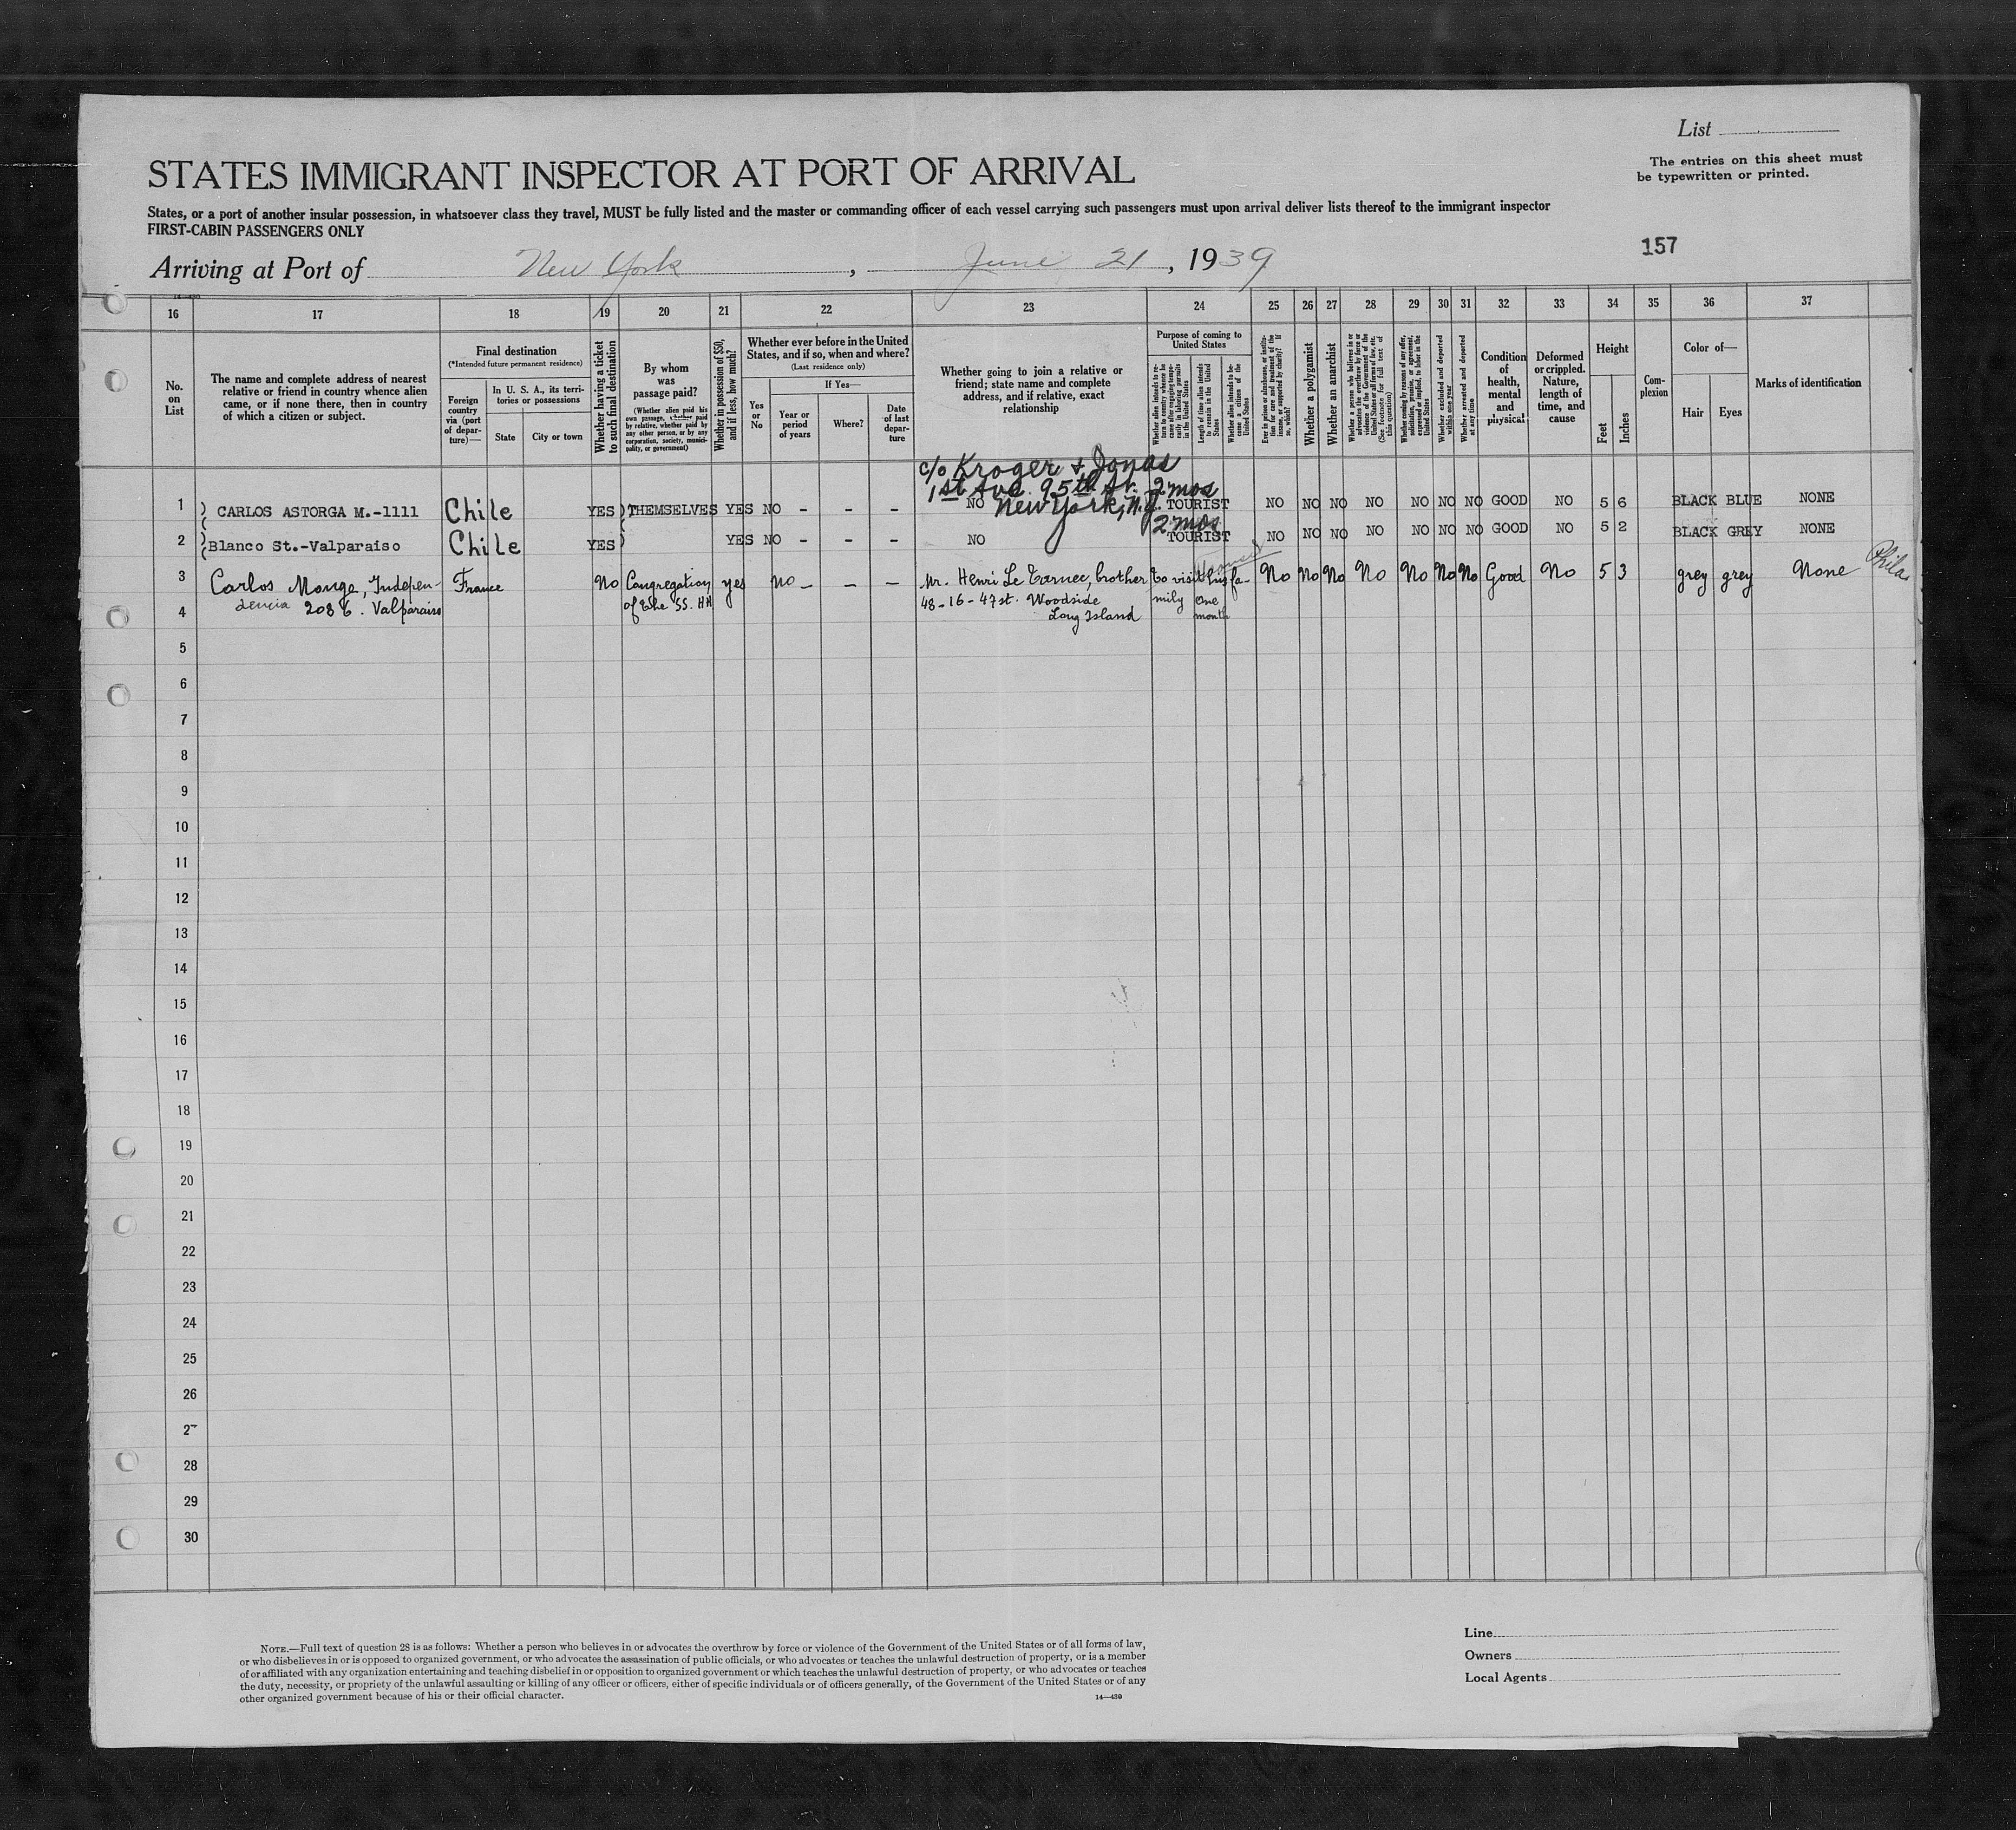 List
The entries on this sheet must
be typewritten or printed.
STATES IMMIGRANT INSPECTOR AT PORT OF ARRIVAL
States, or a port of another insular possession, in whatsoever class they travel, MUST be fully listed and the master or commanding officer of each vessel carrying such passengers must upon arrival deliver lists thereof to the immigrant inspector
FIRST-CABIN PASSENGERS ONLY
157
Arriving at Port of New York, June 21, 1939
16 17 18 19 20 21 22 23 24 25 26 27 28 29 30 31 32 33 34 35 36 37
No.
on
List
The name and complete address of nearest
relative or friend in country whence alien
came, or if none there, then in country
of which a citizen or subject.
Final destination
(*Intended future permanent residence)
Foreign
country
via (port
of depar-
ture)—
In U. S. A., its terri-
tories or possessions
State
City or town
Whether having a ticket
to such final destination
By whom
was
passage paid?
(Whether alien paid his
own passage, whether paid
by relative, whether paid by
any other person, or by any
corporation, society, munici-
pality, or government)
Whether in possession of $50,
and if less, how much?
Whether ever before in the United
States, and if so, when and where?
(Last residence only)
Yes
or
No
If Yes—
Year or
period
of years
Where?
Date
of last
depar-
ture
Whether going to join a relative or
friend; state name and complete
address, and if relative, exact
relationship
Purpose of coming to
United States
Whether alien intends to re-
turn to country whence he
came after engaging tempo-
rarily in laboring pursuits
in the United States
Length of time alien intends
to remain in the United
States
Whether alien intends to be-
come a citizen of the
United States
Ever in prison or almshouse, or institu-
tion for care and treatment of the
insane, or supported by charity? If
so, which?
Whether a polygamist
Whether an anarchist
Whether a person who believes in or
advocates the overthrow by force or
violence of the Government of the
United States or all forms of law, etc.
(See footnote for full text of
this question)
Whether coming by reason of any offer,
solicitation, promise, or agreement,
expressed or implied, to labor in the
United States
Whether excluded and deported
within one year
Whether arrested and deported
at any time
Condition
of
health,
mental
and
physical
Deformed
or crippled.
Nature,
length of
time, and
cause
Height
Feet
Inches
Com-
plexion
Color of—
Hair
Eyes
Marks of identification
c/o Kroger & Jonas
1st Ave. 95th St. 2 mos
New York, N.Y.
1 CARLOS ASTORGA M.-1111 Chile YES THEMSELVES YES NO - - - NO TOURIST NO NO NO NO NO NO NO GOOD NO 5 6 BLACK BLUE NONE
2 mos
2 Blanco St.-Valparaiso Chile YES YES NO - - - NO TOURIST NO NO NO NO NO NO NO GOOD NO 5 2 BLACK GREY NONE
3 Carlos Monge, Indepen- France No Congregation yes No - - - Mr. Henri Le Tarnec, brother To visit his fa- No No No No No No No Good No 5 3 grey grey None Phila
4 dencia 2086. Valparaiso of the SS. HH 48-16-47st. Woodside mily One
Long Island month
5
6
7
8
9
10
11
12
13
14
15
16
17
18
19
20
21
22
23
24
25
26
27
28
29
30
NOTE.—Full text of question 28 is as follows: Whether a person who believes in or advocates the overthrow by force or violence of the Government of the United States or of all forms of law,
or who disbelieves in or is opposed to organized government, or who advocates the assassination of public officials, or who advocates or teaches the unlawful destruction of property, or is a member
of or affiliated with any organization entertaining and teaching disbelief in or opposition to organized government or which teaches the unlawful destruction of property, or who advocates or teaches
the duty, necessity, or propriety of the unlawful assaulting or killing of any officer or officers, either of specific individuals or of officers generally, of the Government of the United States or of any
other organized government because of his or their official character.
14—430
Line
Owners
Local Agents